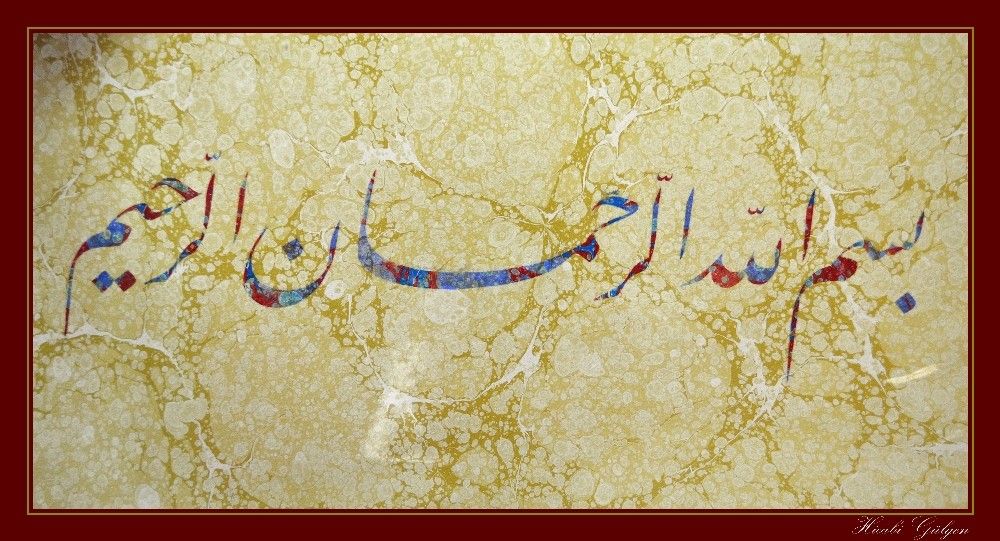 بسم اللّه الرّحمان الرّحيم
Hicabi Gülgen